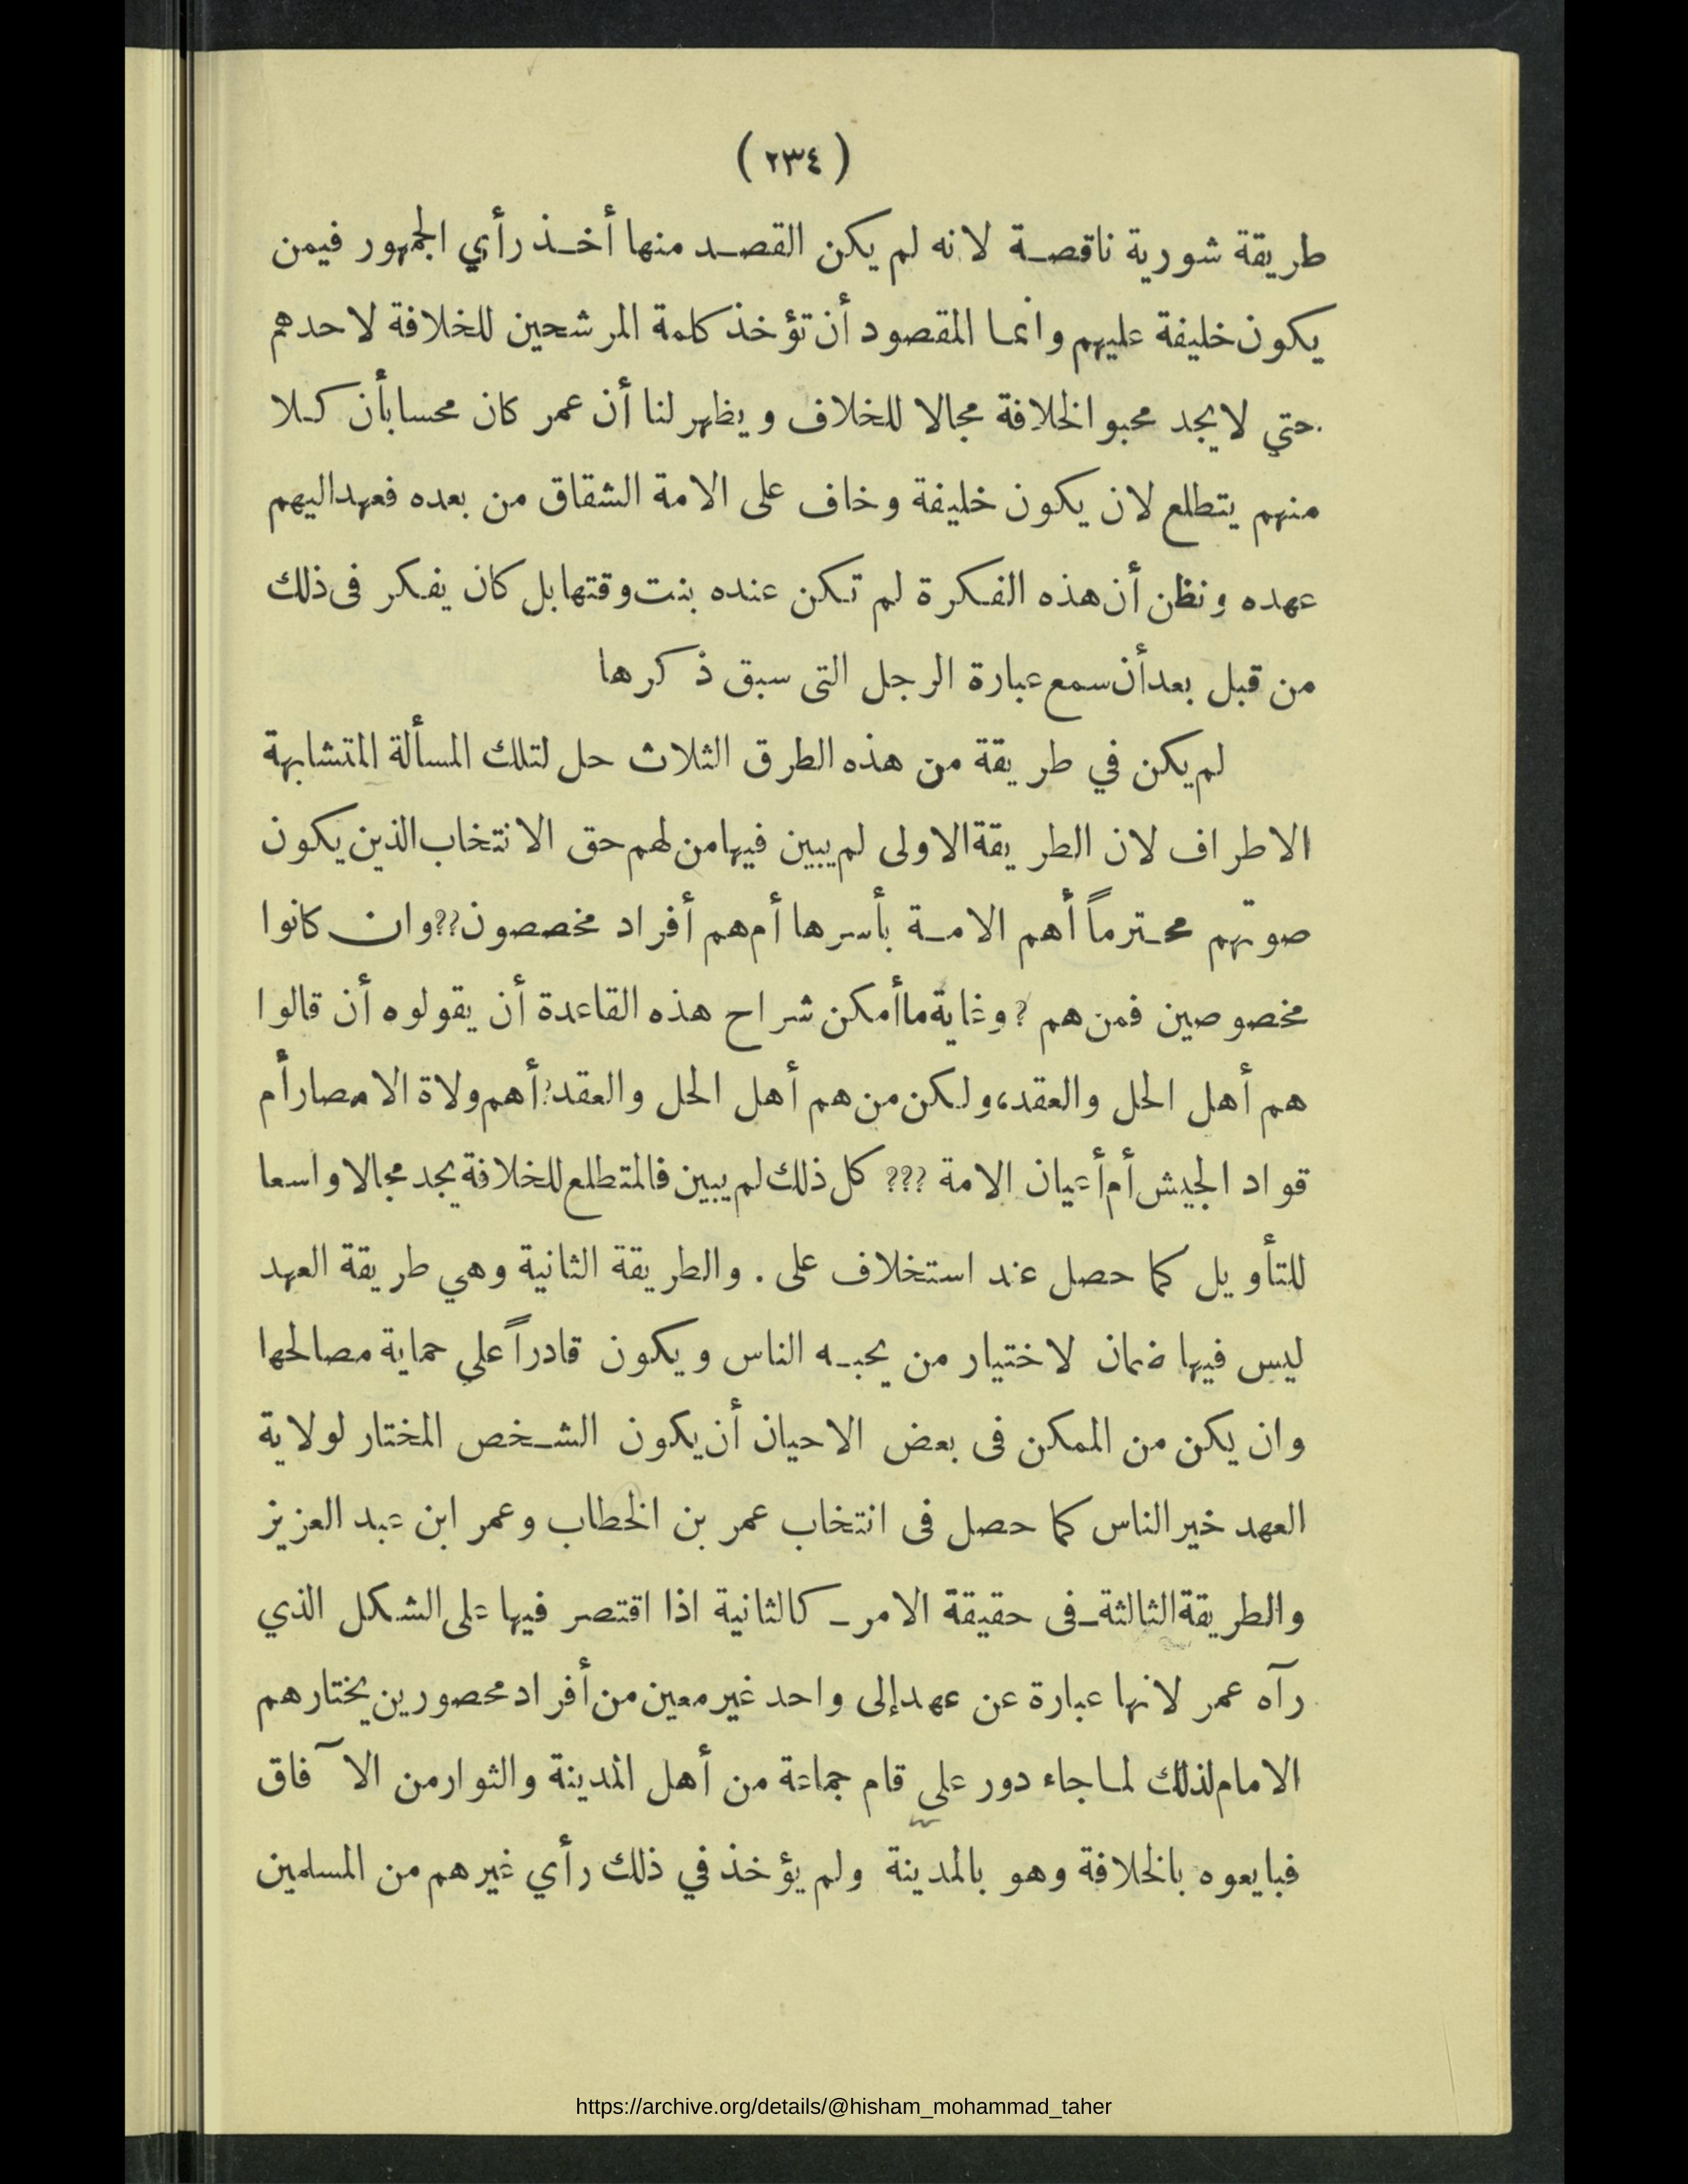 ( ٢٣٤ )
طريقة شورية ناقصة لانه لم يكن القصد منها أخذ رأي الجمهور فيمن
يكون خليفة عليهم وانما المقصود أن تؤخذ كلمة المرشحين للخلافة لاحدهم
حتي لا يجد محبو الخلافة مجالا للخلاف ويظهر لنا أن عمر كان محسا بأن كلا
منهم يتطلع لان يكون خليفة وخاف على الامة الشقاق من بعده فعهد اليهم
عهده ونظن أن هذه الفكرة لم تكن عنده بنت وقتها بل كان يفكر فى ذلك
من قبل بعد أن سمع عبارة الرجل التى سبق ذكرها
لم يكن في طريقة من هذه الطرق الثلاث حل لتلك المسألة المتشابهة
الاطراف لان الطريقة الاولى لم يبين فيها من لهم حق الانتخاب الذين يكون
صوتهم محترماً أهم الامة بأسرها أم هم أفراد مخصصون؟؟ وان كانوا
مخصوصين فمن هم ؟ وغاية ما أمكن شراح هذه القاعدة أن يقولوه أن قالوا
هم أهل الحل والعقد، ولكن من هم أهل الحل والعقد؟ أهم ولاة الامصار أم
قواد الجيش أم أعيان الامة ؟؟؟ كل ذلك لم يبين فالمتطلع للخلافة يجد مجالا واسعا
للتأويل كما حصل عند استخلاف على . والطريقة الثانية وهي طريقة العهد
ليس فيها ضمان لاختيار من يحبه الناس ويكون قادراً علي حماية مصالحها
وان يكن من الممكن فى بعض الاحيان أن يكون الشخص المختار لولاية
العهد خير الناس كما حصل فى انتخاب عمر بن الخطاب وعمر ابن عبد العزيز
والطريقة الثالثة ـ فى حقيقة الامر ـ كالثانية اذا اقتصر فيها على الشكل الذي
رآه عمر لانها عبارة عن عهد إلى واحد غير معين من أفراد محصورين يختارهم
الامام لذلك لما جاء دور علي قام جماعة من أهل المدينة والثوار من الآفاق
فبايعوه بالخلافة وهو بالمدينة ولم يؤخذ في ذلك رأي غيرهم من المسلمين
https://archive.org/details/@hisham_mohammad_taher